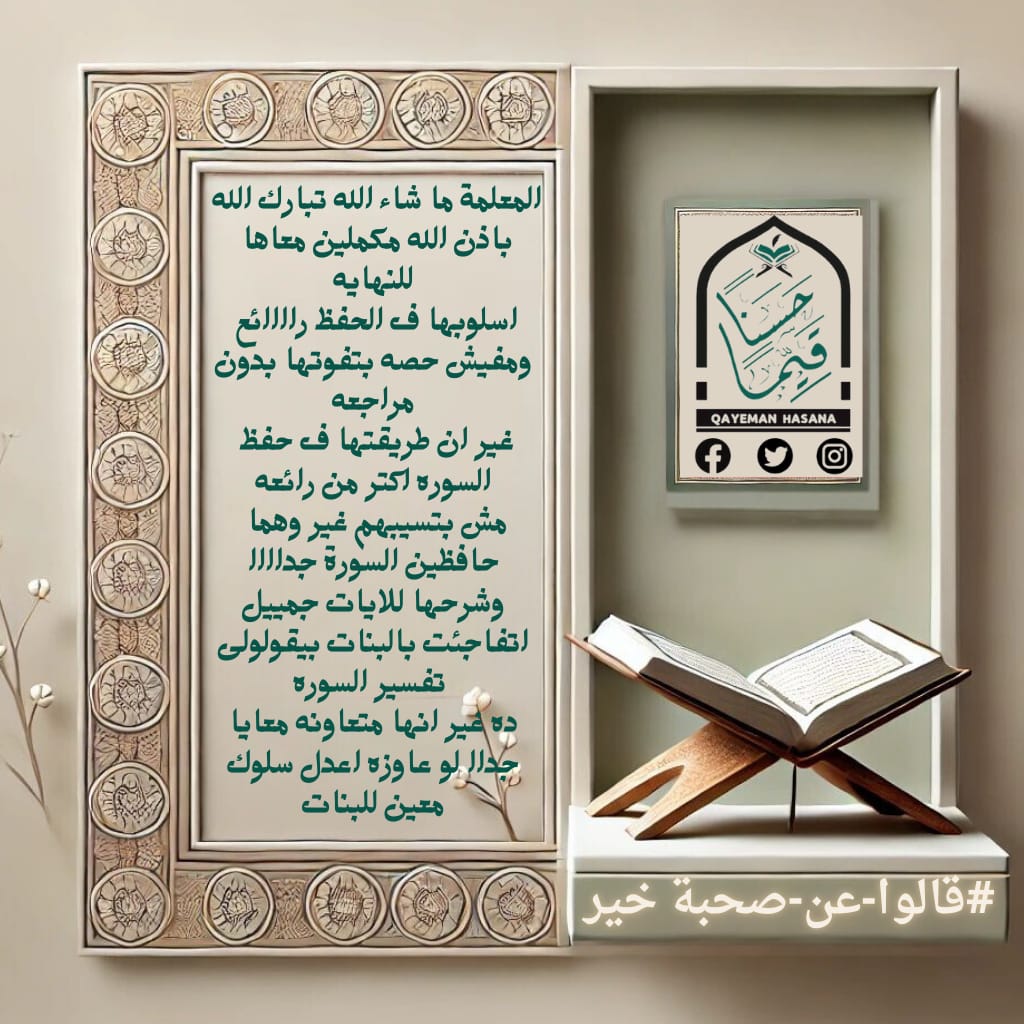 المعلمة ما شاء الله تبارك الله
باذن الله مكملين معاها
للنهايه
اسلوبها ف الحفظ راااائع
ومفيش حصه بتفوتها بدون
مراجعه
غير ان طريقتها ف حفظ
السوره اكتر من رائعه
مش بتسيبهم غير وهما
حافظين السورة جداااا
وشرحها للايات جمييل
اتفاجئت بالبنات بيقولولى
تفسير السوره
ده غير انها متعاونه معايا
جداا لو عاوزه اعدل سلوك
معين للبنات
حَسَنًا
قَيِّمًا
QAYEMAN HASANA
#قالوا-عن-صحبة خير